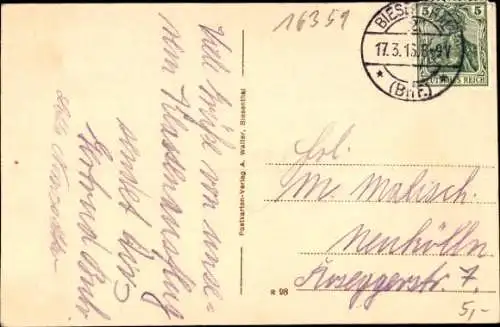 16359
BIESENTHAL
2
17.3.16.8-9V
* (Bhf.) *
5 5
DEUTSCHES REICH
Viele Grüße von unse=
rem Klassenausflug
sendet Dir
Gertrud
Postkarten-Verlag A. Walter, Biesenthal
R 98
Frl.
M. Malisch.
Neukölln
Roseggerstr. 7.
5,-